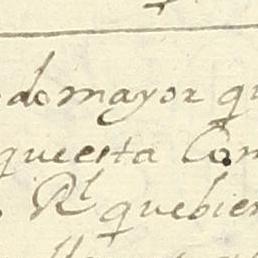 do mayor qu
que esta Com
Rl que bien